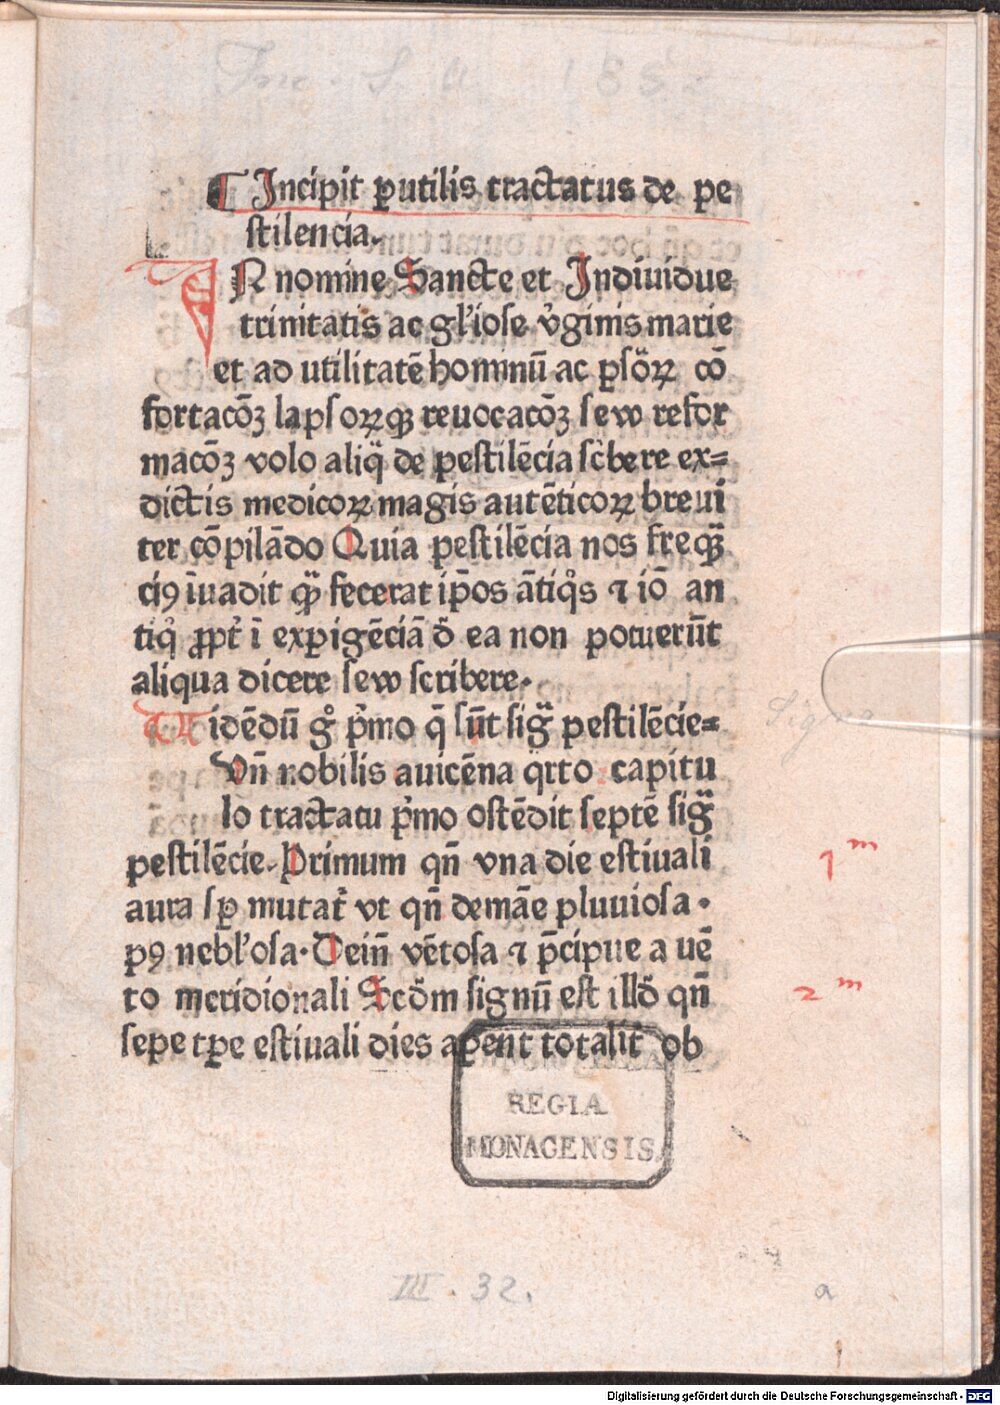 Inc. S. a. 1882
¶ Incipit ꝑutilis tractatus de pe
stilencia.
IN nomine Sancte et Indiuidue
trinitatis ac gl'iose v̓ginis marie
et ad utilitatē hominū ac ꝑsōꝝ cō
fortacōꝫ lapsoꝝqꝫ reuocacōꝫ sew refor
macōꝫ volo aliq̈ de pestilēcia sc̓bere ex⸗
dictis medicoꝝ magis autēticoꝝ breui
ter cōpilādo Quia pestilēcia nos freqn̈
ciꝰ īuadit qꝫ̈ fecerat ip̄os ātiq̊s ⁊ iō an
tiq̓ ꝓpt̓ ī exꝑigēciā ō ea non potuerūt
aliqua dicere sew scribere.
Uidēdū g̊ p̓mo q̄ sūt sig̈ pestilēcie⸗
Vn̄ nobilis auicēna q̈rto capitu
lo tractatu p̓mo ostēdit septē sig̈
pestilēcie. Primum qn̄ vna die estiuali
aura sꝑ mutat᷑ vt qn̄ demāe pluuiosa .
pꝰ nebl'osa. Dein̄ vētosa ⁊ p̄cipue a uē
to meridionali Secōm signū est illō qn̄
sepe tꝑe estiuali dies aꝑent totalit̓ ob
Signa
1 m
2 m
REGIA
MONACENSIS.
III. 32.
a
Digitalisierung gefördert durch die Deutsche Forschungsgemeinschaft - DFG